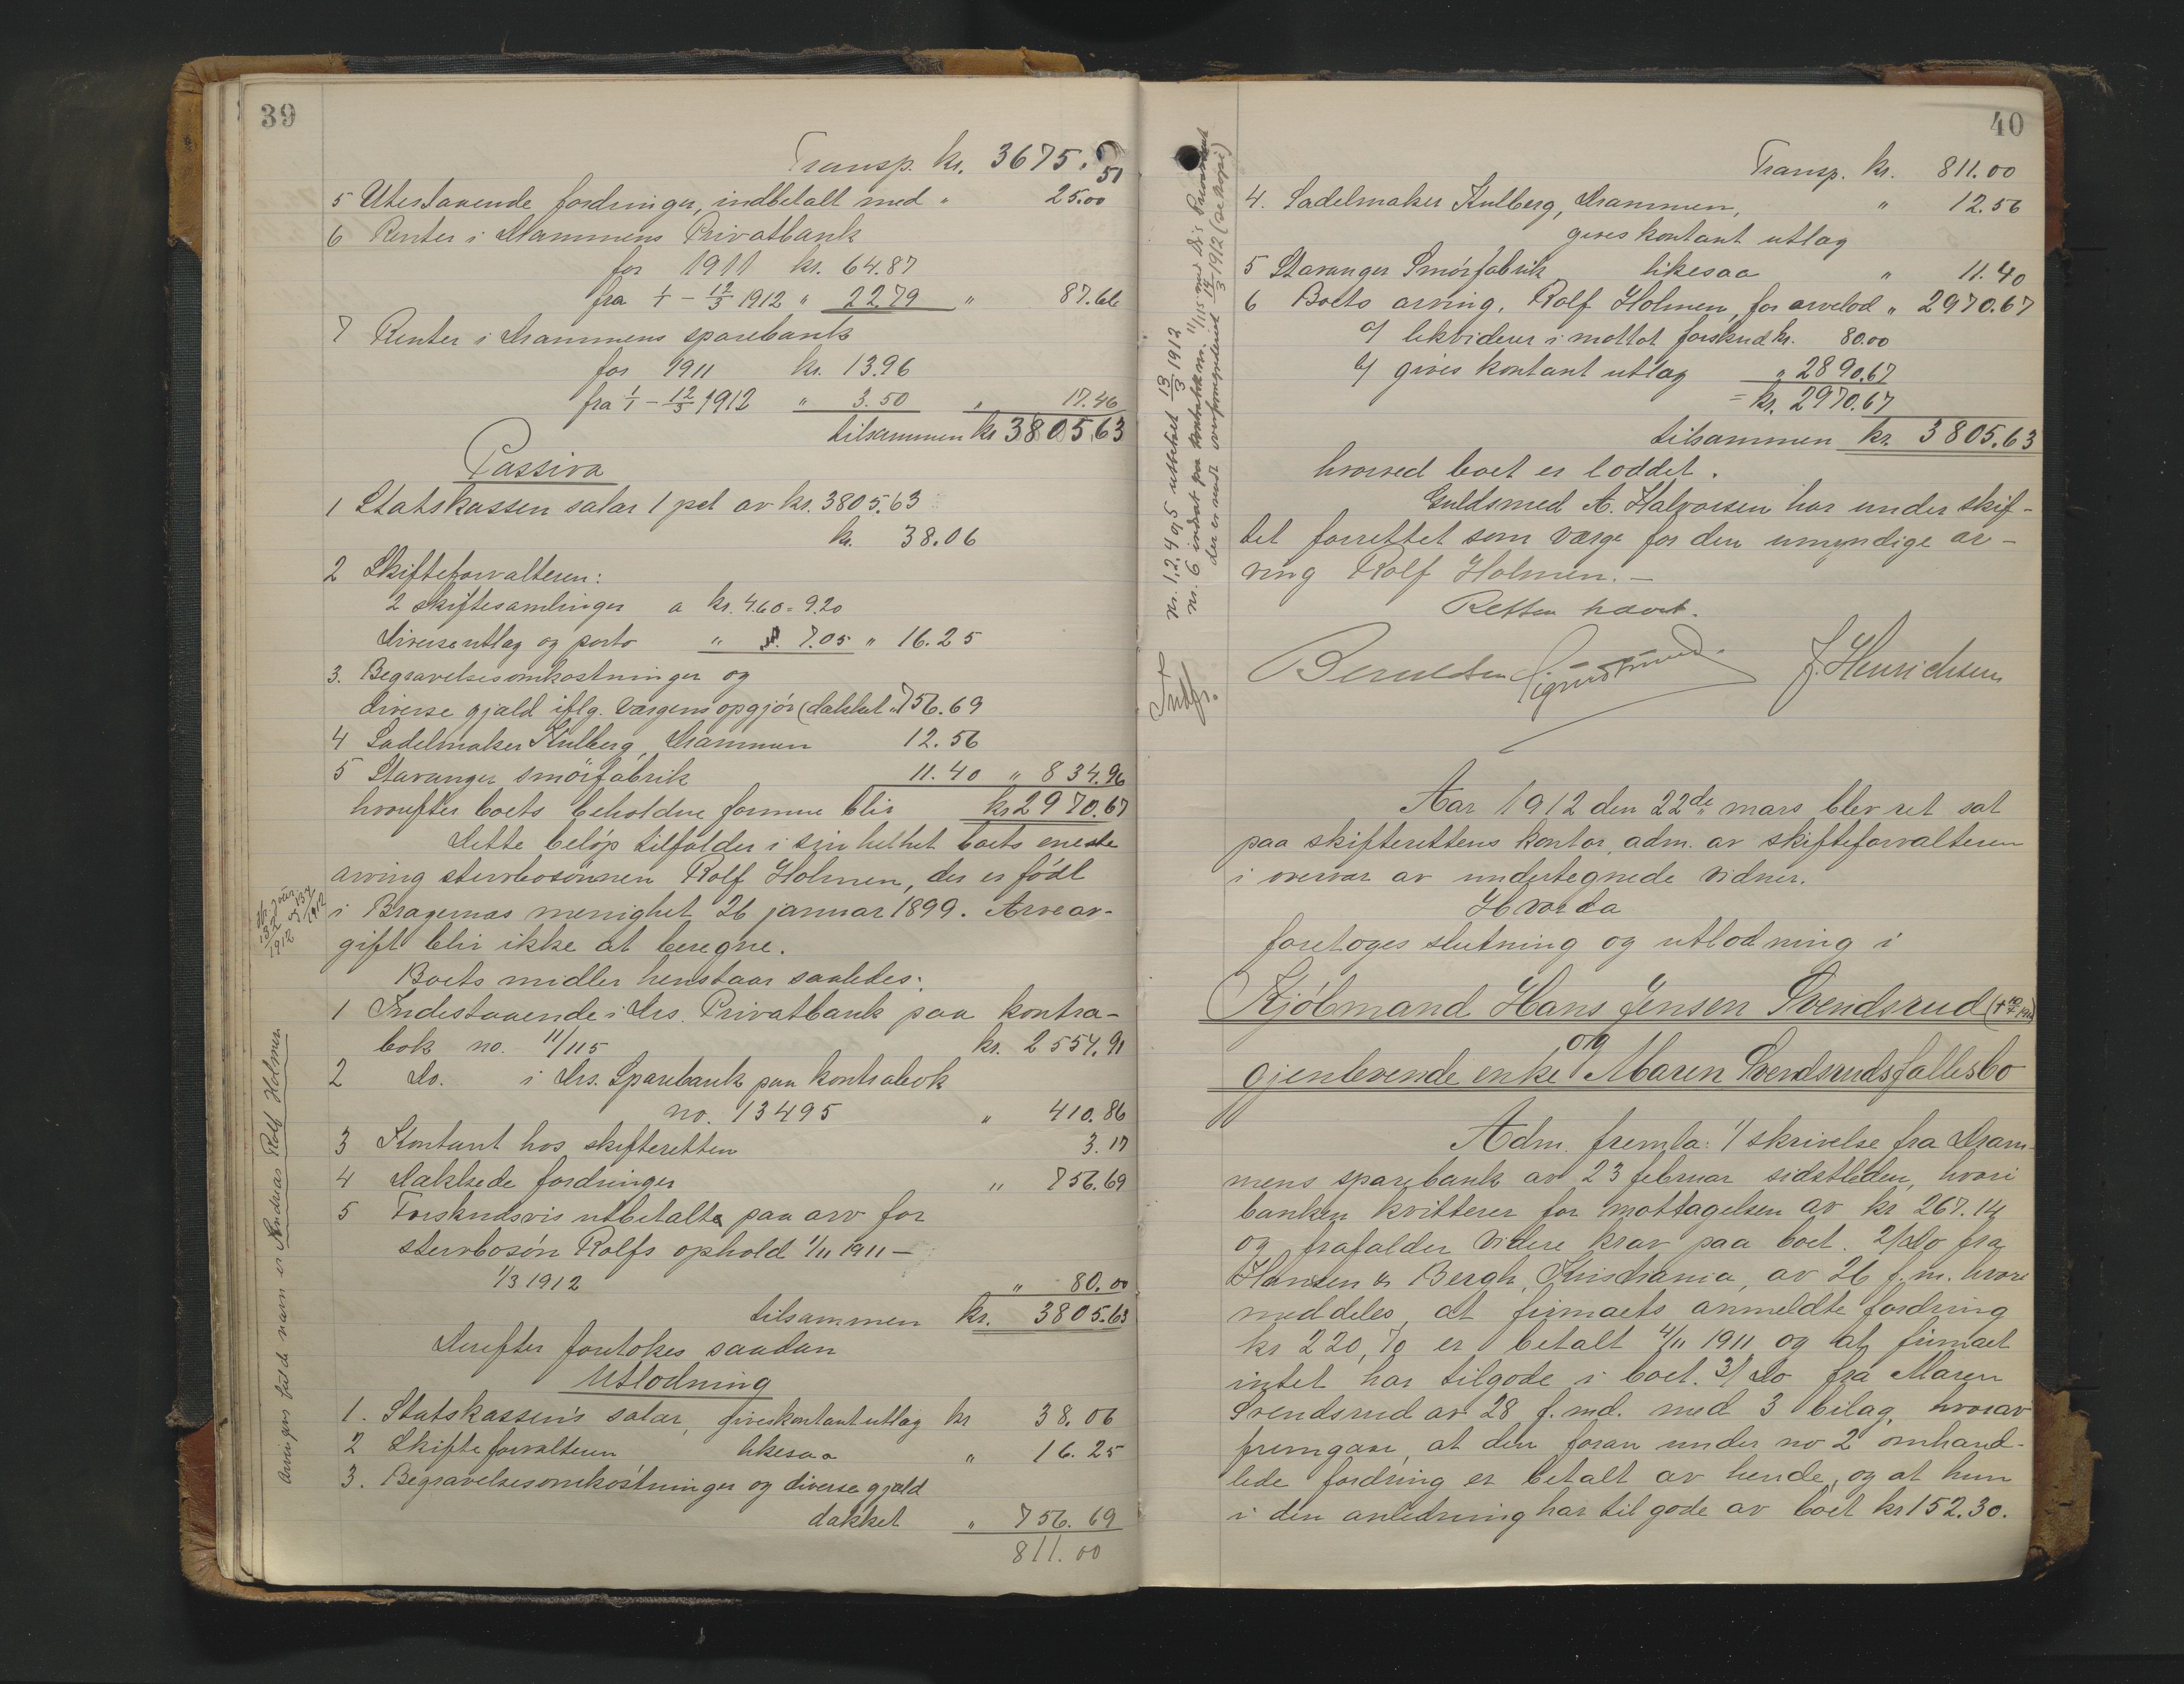 39
Transp. kr. 3675.51
5 Utestaaende fordringer, indbetalt med " 25.00
6 Renter i Drammens Privatbank
for 1911 kr. 64.87
fra 1/1 - 12/3 1912 " 22 79 " 87.66
7 Renter i Drammens sparebank
for 1911 kr. 13.96
fra 1/1 - 12/3 1912 " 3.50 " 17.46
tilsammen kr 3805.63
Passiva
1 Statskassen salær 1 pct av kr. 3805.63
kr. 38.06
2 Skifteforvalteren:
2 skiftesamlinger a kr. 4.60 = 9.20
Diverse utlæg og porto " 7.05 " 16.25
3. Begravelsesomkostninger og
diverse gjæld iflg. værgens opgjör (dækket " 756.69
4 Sadelmaker Kulberg, Drammen 12.56
5 Stavanger smörfabrik 11.40 " 834.96
hvorefter boets beholdne formue blir kr 2970.67
Dette belöp tilfalder i sin helhet boets eneste
arving stervbosönnen Rolf Holmen, der er född
i Bragernæs menighet 26 januar 1899. Arveav-
gift blir ikke at beregne.
Boets midler henstaar saaledes:
1 Indestaaende i Drs. Privatbank paa kontra-
bok no. 11/115 kr. 2554.91
2 Do. i Drs. Sparebank paa kontrabok
no. 13495 " 410.86
3 Kontant hos skifteretten 3.17
4 Dækkede fordringer " 756.69
5 Forskudsvis utbetalte paa arv for
stervbosön Rolfs ophold 1/11 1911 -
1/3 1912 " 80.00
tilsammen kr. 3805.63
Derefter foretokes saadan
Utlodning
1. Statskassen's salær, gives kontant utlæg kr 38.06
2 Skifteforvalteren likesaa " 16.25
3. Begravelsesomkostninger og diverse gjæld
dækket " 756.69
811.00
Arvingens fulde navn er Andreas Rolf Holmen
40
Transp. kr. 811.00
4. Sadelmaker Kulberg, Drammen, " 12.56
gives kontant utlæg
5 Stavanger Smörfabrik likesaa " 11.40
6 Boets arving, Rolf Holmen, for arvelod " 2970.67
a/ likviderer i mottat forskud kr. 80.00
b/ gives kontant utlæg " 2890.67
= kr. 2970.67
tilsammen kr. 3805.63
hvorved boet er loddet.
Guldsmed A. Halvorsen har under skif-
tet forrettet som værge for den umyndige ar-
ving Rolf Holmen. -
Retten hævet.
Berntsen Sigmund J. Henrichsen
nr. 1, 2, 4 og 5 utbetalt 13/3 1912
nr. 6 indsat paa kontrabok nr. 11/115 med Dr's Privatbank
der er sendt overformynderiet 14/3 1912 (se kopi)
Indf.
Aar 1912 den 22de mars blev ret sat
paa skifterettens kontor, adm. av skifteforvalteren
i overvær av undertegnede vidner.
Hvorda
foretoges slutning og utlodning i
Kjöbmand Hans Jensen Svendsrud
og
gjenlevende enke Maren Svendsruds fællesbo
Adm. fremla: 1/ skrivelse fra Dram-
mens sparebank av 23 februar sidstleden, hvori
banken kvitterer for mottagelsen av kr 267.14
og frafalder videre krav paa boet. 2/ do fra
Hansen & Bergh, Kristiania, av 26 f. m. hvori
meddeles, at firmaets anmeldte fordring
kr 220,70 er betalt 4/11 1911 og at firmaet
intet har tilgode i boet. 3/ do fra Maren
Svendsrud av 28 f. md. med 3 bilag, hvorav
fremgaar, at den foran under no 2 omhand-
lede fordring er betalt av hende, og at hun
i den anledning har til gode av boet kr 152.30.